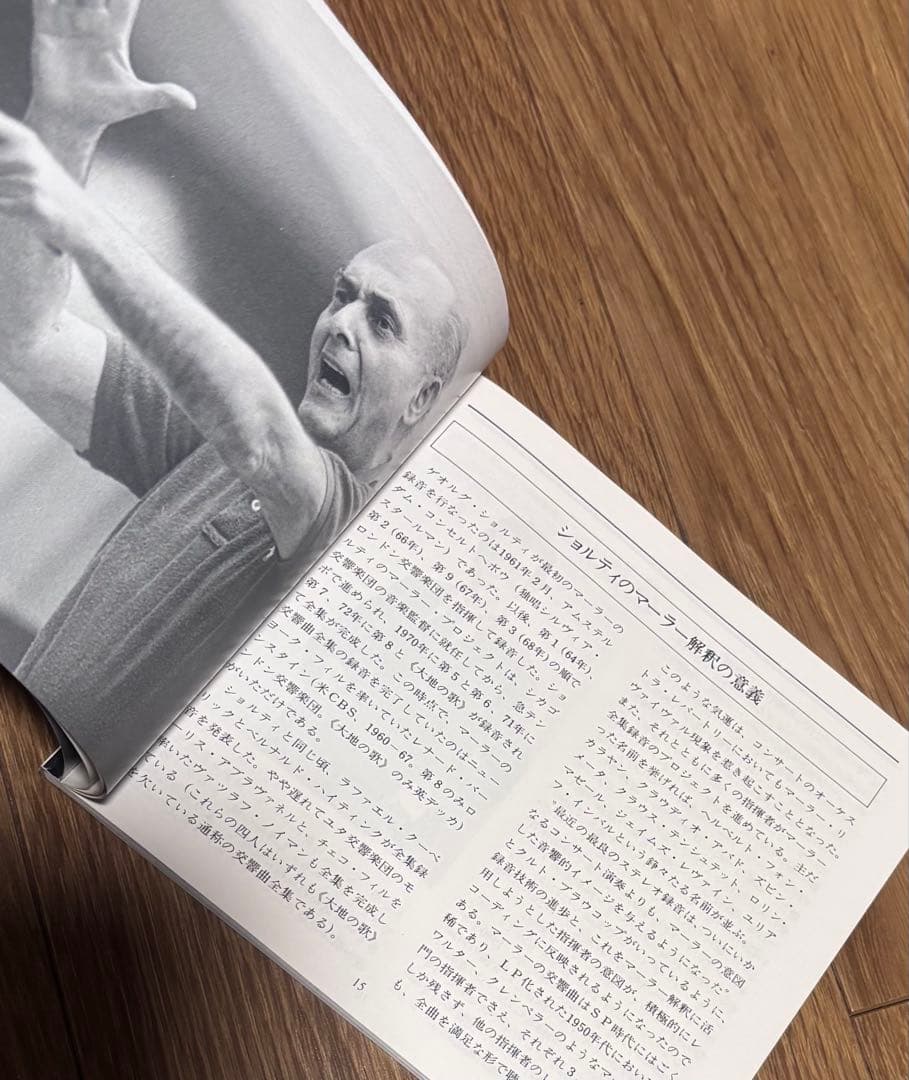 ショルティのマーラー解釈の意義
ゲオルグ・ショルティが最初のマーラーの
録音を行なったのは1961年2月、アムステル
ダム・コンセルトヘボウ（独唱シルヴィア・
スタールマン）であった。以後、第1（64年）
第2（66年）、第9（67年）、第3（68年）の順で
ロンドン交響楽団を指揮して録音した。ショ
ルティのマーラー・プロジェクトは、シカゴ
交響楽団の音楽監督に就任してから、急テン
ポで進められ、1970年に第5と第6、71年に
第7、72年に第8と《大地の歌》が録音され
て全集が完成した。この時点で、マーラーの
交響曲全集の録音を完了していたのはニュー
ヨーク・フィルを率いていたレナード・バー
ンスタイン（米CBS、1960―67。第8のみロ
ンドン交響楽団。《大地の歌》のみ英デッカ）
がいただけである。
ショルティと同じ頃、ラファエル・クーベ
リックとベルナルド・ハイティンクが全集録
音を発表した。やや遅れてユタ交響楽団のモ
ーリス・アブラヴァネルと、チェコ・フィルを
率いたヴァツラフ・ノイマンも全集を完成し
ている（これらの四人はいずれも《大地の歌》
を欠いている通称の交響曲全集である）。
このような気運は、コンサートのオーケス
トラ・レパートリーにおいてもマーラー・リ
ヴァイヴァル現象を惹き起こすこととなった。
また、それとともに多くの指揮者がマーラー
全集録音のプロジェクトを進めている。主だ
った名前を挙げれば、ヘルベルト・フォン・
カラヤン、クラウディオ・アバド、ズビン・
メータ、クラウス・テンシュテット、ロリン・
マゼール、ジェイムズ・レヴァイン、エリア
フ・インバルという錚々たる名前が並ぶ。
“最近の最良のステレオ録音は、ついにいか
なるコンサート演奏よりも、マーラーの意図
した音響的イメージを与えるようになった”
とクルト・ブラウコップがいっているように、
録音技術の進歩と、これをマーラー解釈に活
用しようとした指揮者の意図が、積極的にレ
コーディングに反映されるようになったので
ある。マーラーの交響曲はSP時代にはごく
稀であり、LP化された1950年代におい
ワルター、クレンペラーのようなマ
門の指揮者でさえ、それぞれ3
しか残さず、他の指揮者の
も、全曲を満足な形で聴
15